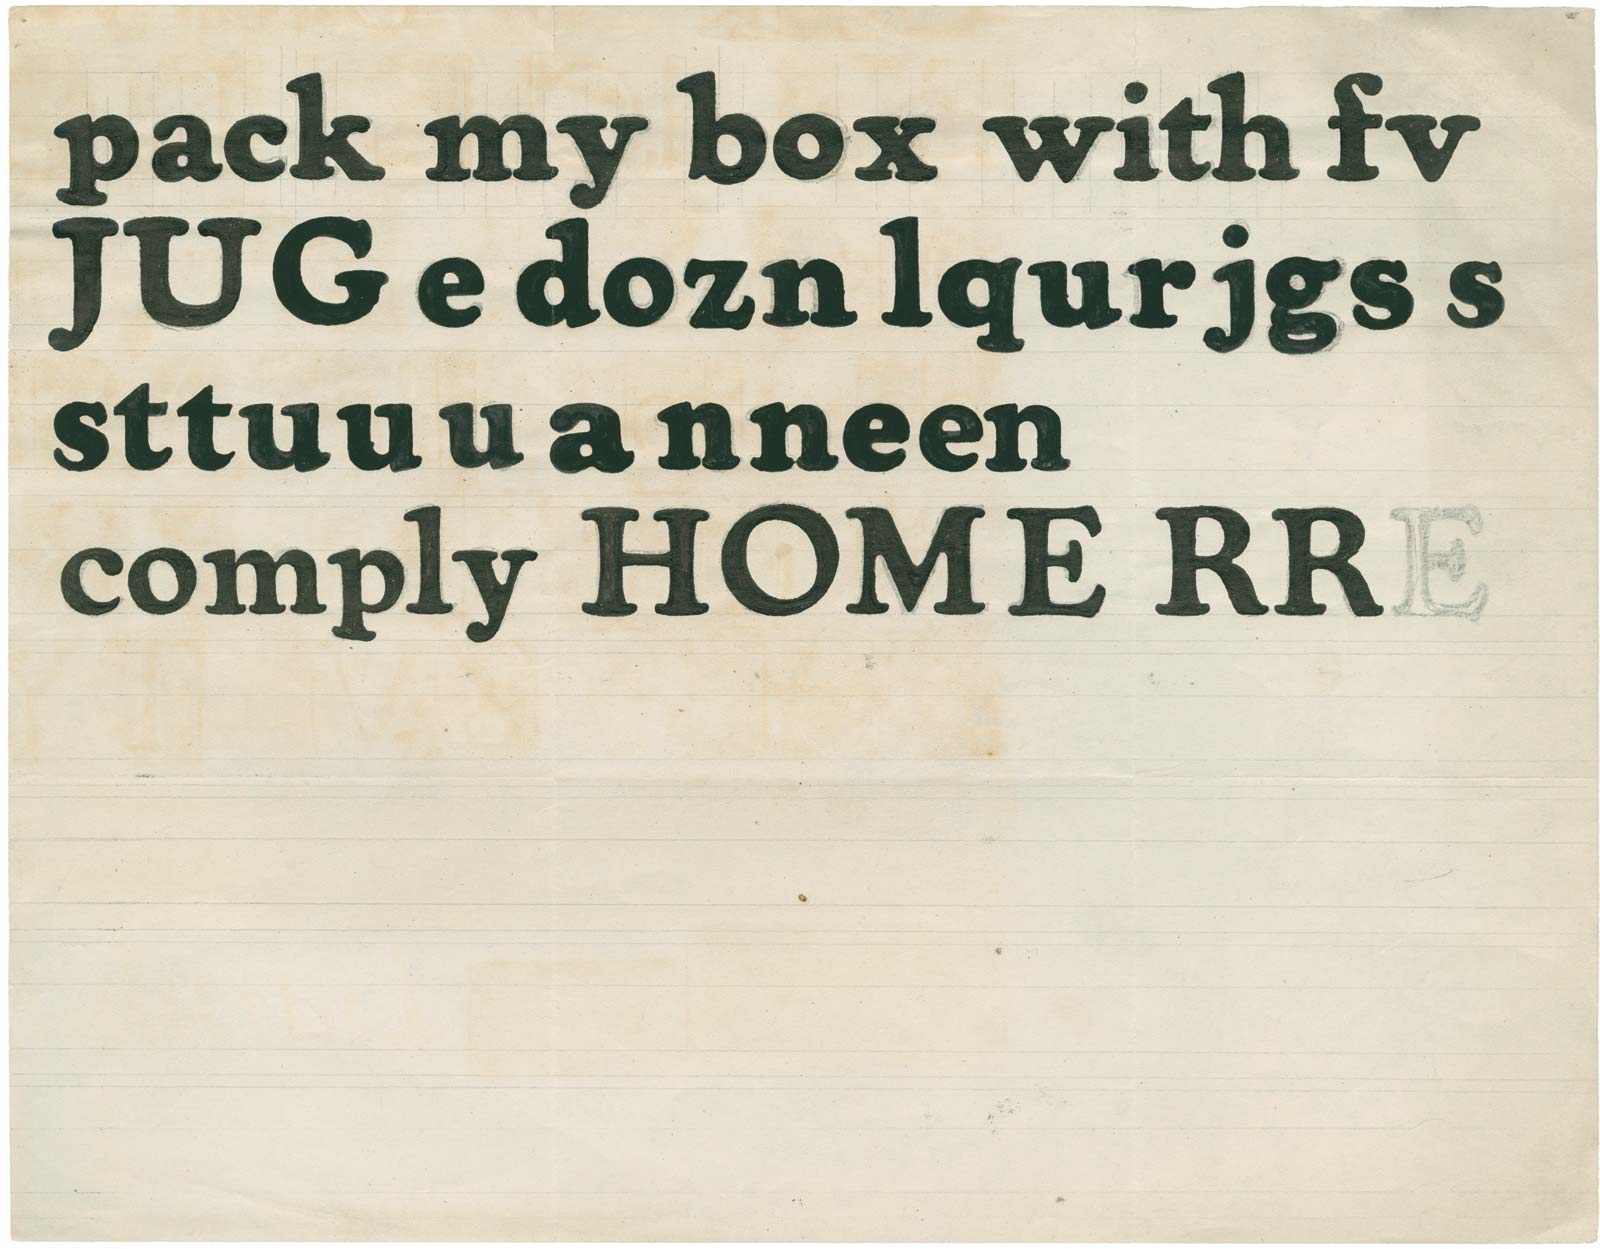 pack my box with fv
JUG e dozn lqur jgs s
sttuuu a nneen
comply HOME RRE